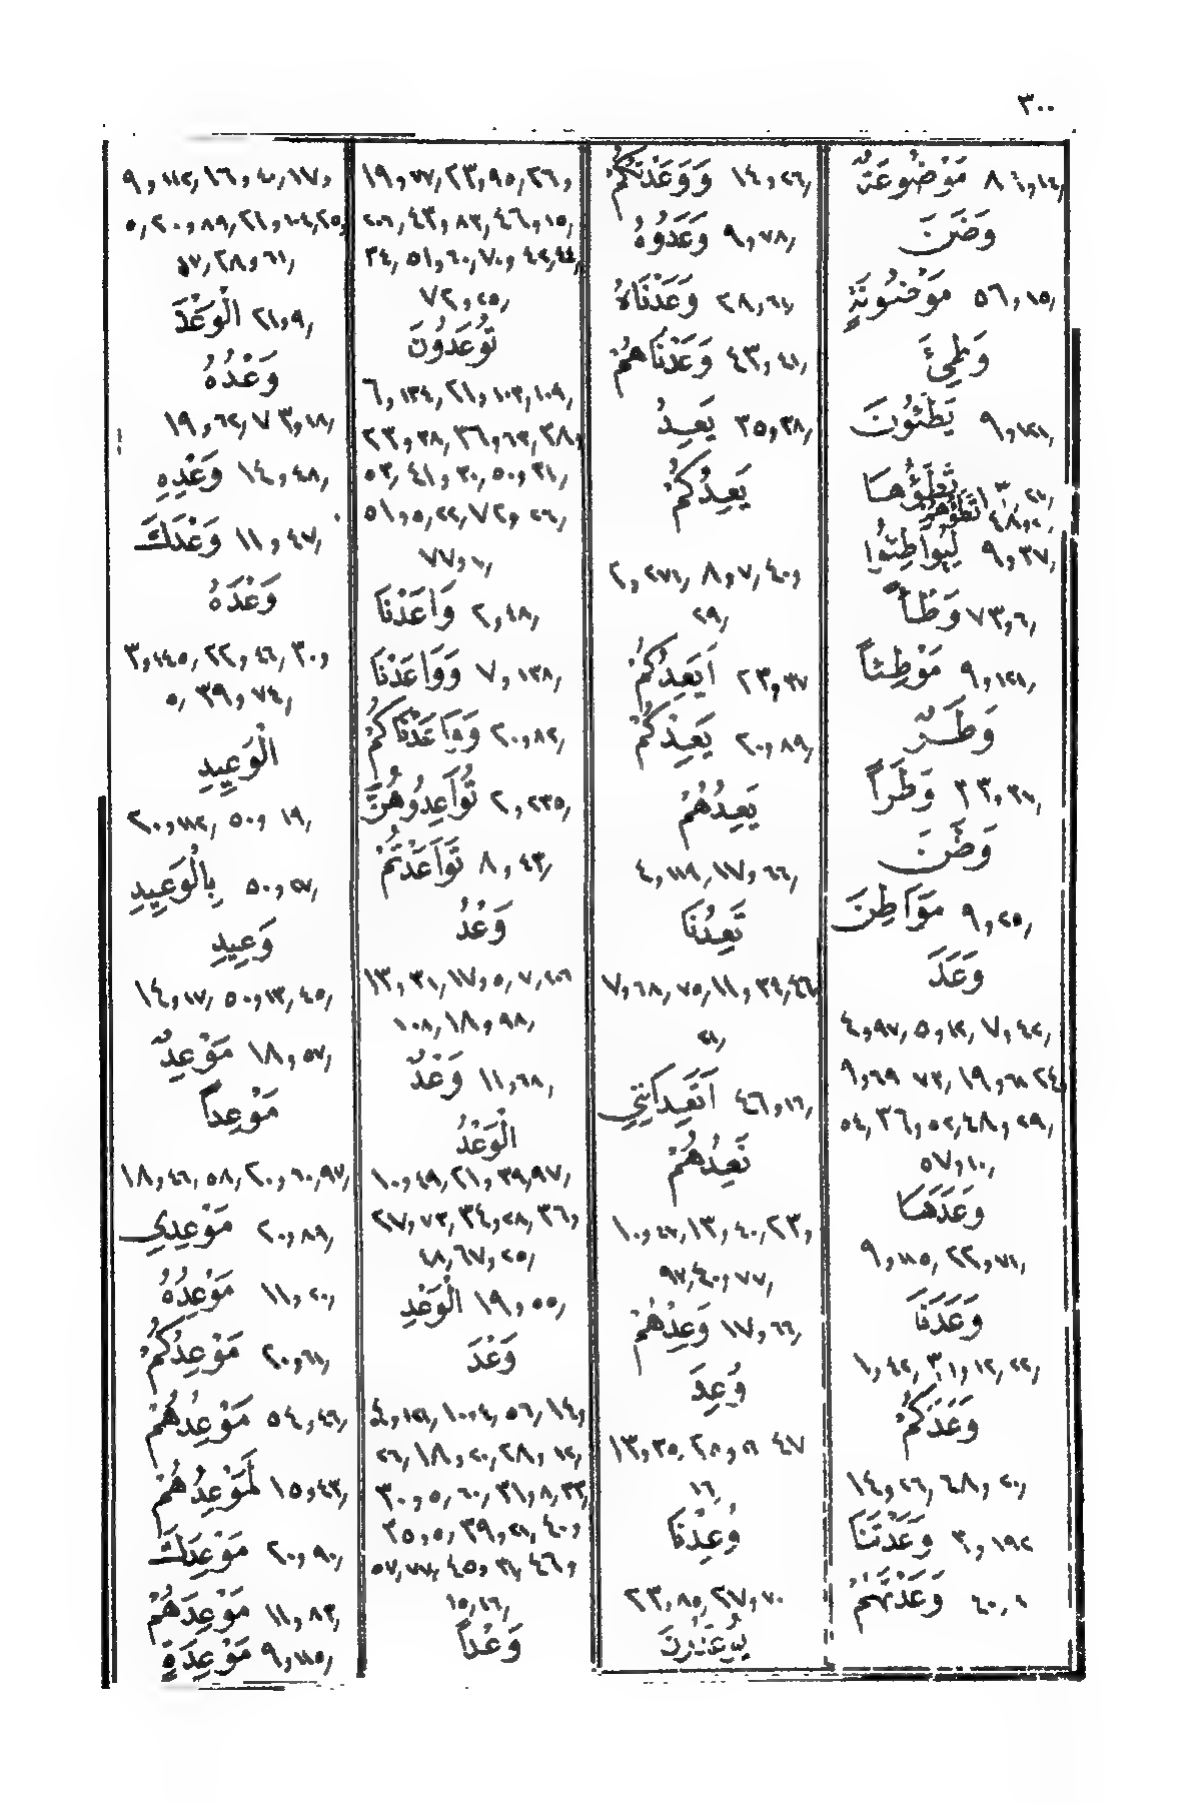 ٣٠٠
مَوْضُوعَةٌ ٨٨,١٤
وَضَنَ
مَوْضُونَةٍ ٥٦,١٥
وَطِئَ
يَطَئُونَ ٩,١٢١
تَطَئُوهَا ٣٣,٢٧
تَطَئُوهُمْ ٤٨,٢٥
لِيُوَاطِئُوا ٩,٣٧
وَطْأً ٧٣,٦
مَوْطِئاً ٩,١٢١
وَطَرٌ
وَطَراً ٣٣,٣٧
وَطَنَ
مَوَاطِنَ ٩,٢٥
وَعَدَ
٤,٩٧,٥,١٢,٧,٤٤
٩,٦٩ ٧٣,١٩,٦٨ ٢٤
٥٤,٣٦,٥٢,٤٨,٢٩
٥٧,١٠
وَعَدَهَا
٩,١١٥,٢٢,٧٢
وَعَدَنَا
٣٣,١٢,٢٢
وَعَدَكُمْ
١٤,٢٢,٤٨,٢٠
وَعَدْتَنَا ٣,١٩٤
وَعَدْتَهُمْ ٤٠,٨
وَوَعَدْتُكُمْ ١٤,٢٢
وَعَدُوهُ ٩,٧٨
وَعَدْنَاهُ ٢٨,٦١
وَعَدْنَاهُمْ ٤٣,٤١
يَعِدُ ٣٥,٣٨
يَعِدُكُمْ
٢,٢٧١,٨,٧,٤٠
٢٩
اَيَعِدُكُمْ ٢٣,٣٧
يَعِدْكُمْ ٢٠,٨٩
يَعِدُهُمْ
٤,١١٩,١٧,٦٦
تَعِدُنَا
٧,٦٨,٧٥,١١,٣٤,٤٦
٢١
اَتَعِدَانِنِي ٤٦,١٦
نَعِدُهُمْ
١٠,٤٧,١٣,٤٠,٢٣
٩٧,٤٠,٧٧
وَعِدْهُمْ ١٧,٦٦
وُعِدَ
١٣,٣٥,٢٨,١٦ ٤٧
١٦
وُعِدْنَا
٢٣,٨٥,٢٧,٧٠
يُوعَدُونَ
١٩,٧٧,٢٣,٩٥,٢٦
٢٠٦,٤٣,٨٣,٤٦,١٥
٣٤,٥١,٦٠,٧٠,٤٢,٤٤
٧٢,٢٥
تُوعَدُونَ
٦,١٣٤,٢١,١٠٣,١٠٩
٢٣,٣٨,٣٦,٦٣,٣٨
٥٣,٤١,٣٠,٥٠,٣١
٥١,٥,٢٢,٧٢,٢٦
٧٧,٧
وَاعَدْنَا ٢,٤٨
وَوَاعَدْنَا ٧,١٣٨
وَوَاعَدْنَاكُمْ ٢٠,٨٢
تُوَاعِدُوهُنَّ ٢,٢٣٥
تَوَاعَدْتُمْ ٨,٤٣
وَعْدُ
١٣,٣١,١٧,٥,٧,١٠٦
١٠٨,١٨,٩٨
وَعْدٌ ١١,٦٨
الْوَعْدُ
١٠,٤٩,٢١,٣٩,٩٧
٢٧,٧٣,٣٤,٢٨,٣٦
٤٨,٦٧,٢٥
الْوَعْدِ ١٩,٥٥
وَعْدَ
٤,١٢١,١٠,٤,٥٦,١٤
٢٦,١٨,٢٠,٢٨,١٢
٣٠,٥,٦٠,٣١,٨,٣٣
٣٥,٥,٣٩,٢١,٤٠
٥٧,٧٧,٤٥,٣١,٤٦
١٥,١٦
وَعْداً
٩,١١٢,١٦,٤٠,١٧
٥,٢٠,٨٩,٢١,١٠٤,٢٥
٥٧,٢٨,٦١
الْوَعْدَ ٢١,٩
وَعْدُهُ
١٩,٦٢,٧٣,١٨
وَعْدِهِ ١٤,٤٨
وَعْدَكَ ١١,٤٧
وَعْدَهُ
٣,١٤٥,٢٢,٤٦,٣٠
٥,٣٩,٧٤
الْوَعِيدِ
٢٠,١١٢,٥٠,١٩
بِالْوَعِيدِ ٥٠,٢٧
وَعِيدِ
١٤,١٧,٥٠,١٣,٤٥
مَوْعِدٌ ١٨,٥٧
مَوْعِداً
١٨,٤٦,٥٨,٢٠,٦٠,٩٧
مَوْعِدِي ٢٠,٨٩
مَوْعِدُهُ ١١,٢٠
مَوْعِدُكُمْ ٢٠,٦١
مَوْعِدُهُمْ ٥٤,٤٦
لَمَوْعِدُهُمْ ١٥,٤٣
مَوْعِدَكَ ٢٠,٩٠
مَوْعِدَهُمْ ١١,٨٣
مَوْعِدَةٍ ٩,١١٥